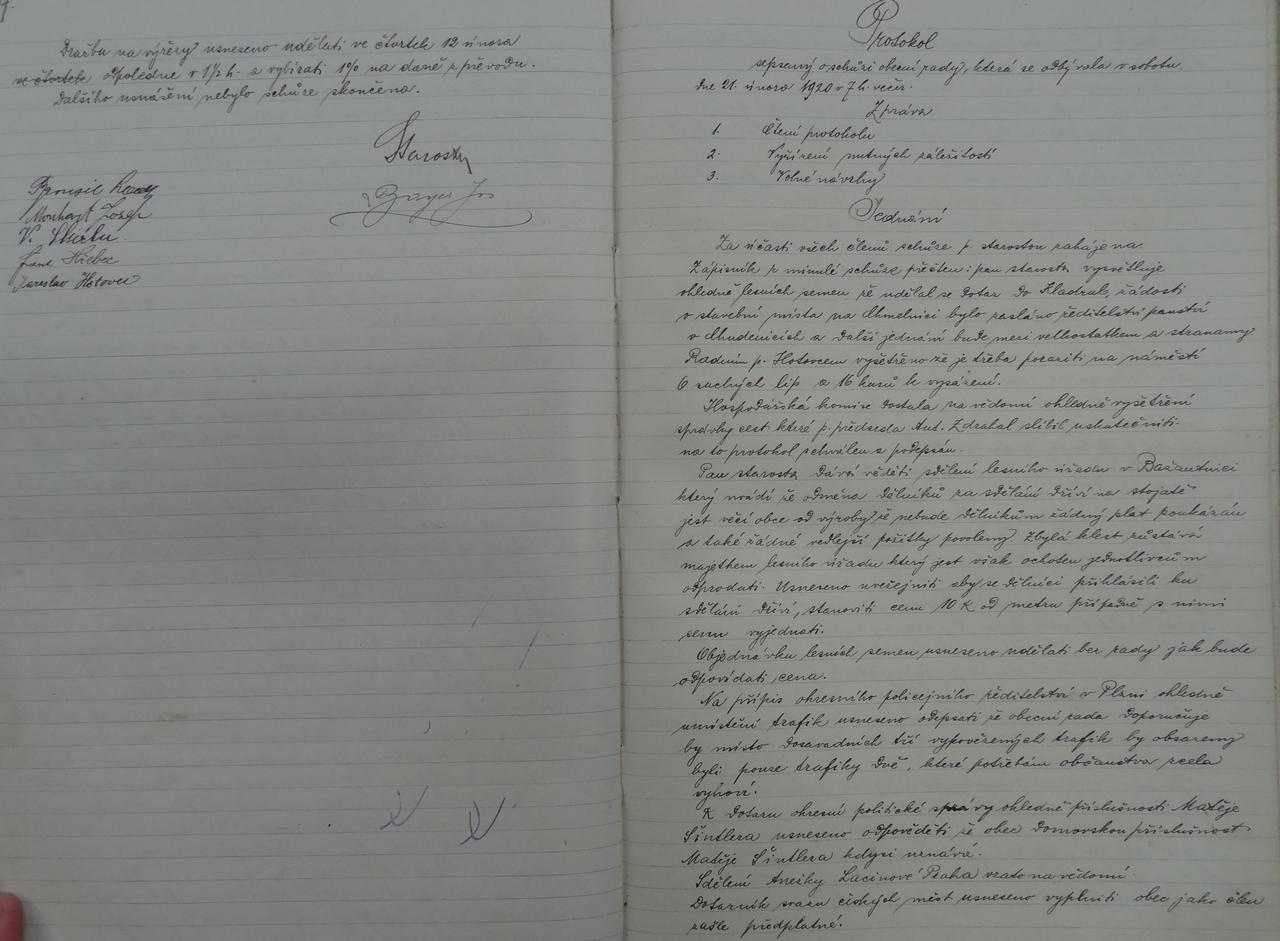 Dražbu na výřezy usneseno udělati ve čtvrtek 12 února
ve čtvrtek odpoledne v 1½ h. a vybírati 1% na daně z převodu.
Dalšího usnášení nebylo schůze skončena.
Starosta
Bayer Jos
Brousil
Josef
V.
Frant. Hřebec
Jaroslav Hotovec
Protokol
sepsaný o schůzi obecní rady, která se odbývala v sobotu
dne 21. února 1920 v 7 h. večer.
Zpráva
1. Čtení protokolu
2. Vyřízení nutných záležitostí
3. Volné návrhy
Jednání
Za účasti všech členů schůze p. starostou zahájena.
Zápisník z minulé schůze přečten: pan starosta vysvětluje
ohledně lesních semen že udělal se dotaz do Kladrub, žádosti
o stavební místa na Chmelnici bylo zasláno ředitelství panství
v Chudenicích a další jednání bude mezi velkostatkem a stranamy
Radním p. Hotovcem vyšetřeno že je třeba poraziti na náměstí
6 suchých lip a 16 kusů k vysázení.
Hospodářská komise dostala na vědomí ohledně vyšetření
správky cest které p. předseda Ant. Zdrahal slíbil uskutečniti.
na to protokol schválen a podepsán.
Pan starosta dává věděti sdělení lesního úřadu v Bažantnici
který uvádí že odměna dělníků za sdělání dříví na stojatě
jest věcí obce od výroby že nebude dělníkům žádný plat poukázán
a také žádné vedlejší požitky povoleny. Zbylá klest zůstává
majetkem lesního úřadu který jest však ochoten jednotlivcům
odprodati. Usneseno uveřejniti aby se dělníci přihlásili ku
sdělání dříví, stanoviti cenu 10 K od metru případně s nimi
cenu vyjednati.
Objednávku lesních semen usneseno udělati bez rady jak bude
odpovídati cena.
Na přípis okresního policejního ředitelství v Plzni ohledně
umístění trafik usneseno odepsati že obecní rada doporučuje
by místo dosavadních tří vypovězených trafik by obsazeny
byli pouze trafiky dvě, které potřebám občanstva zcela
vyhoví.
K dotazu okresní politické správy ohledně příslušnosti Matěje
Šintlera usneseno odpověděti že obec domovskou příslušnost
Matěje Šintlera kdysi uznává.
Sdělení Anežky Lacinové Praha vzato na vědomí.
Dotazník svazu českých měst usneseno vyplniti obec jako člen
zašle předplatné.